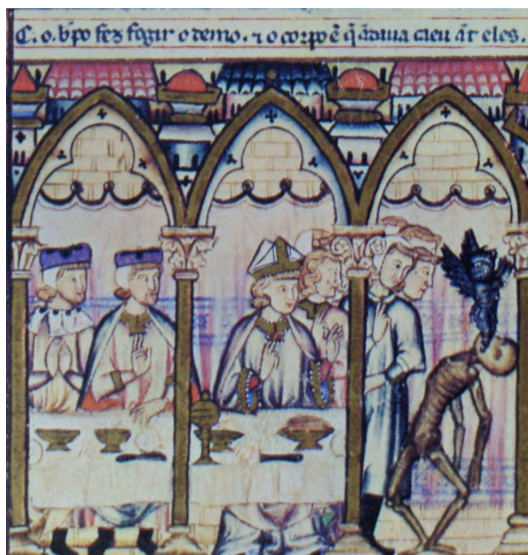 C. o. bp̃o fez fogir o demo. ⁊ o corpo ẽ q̃ ãdaua caeu ãt eles.